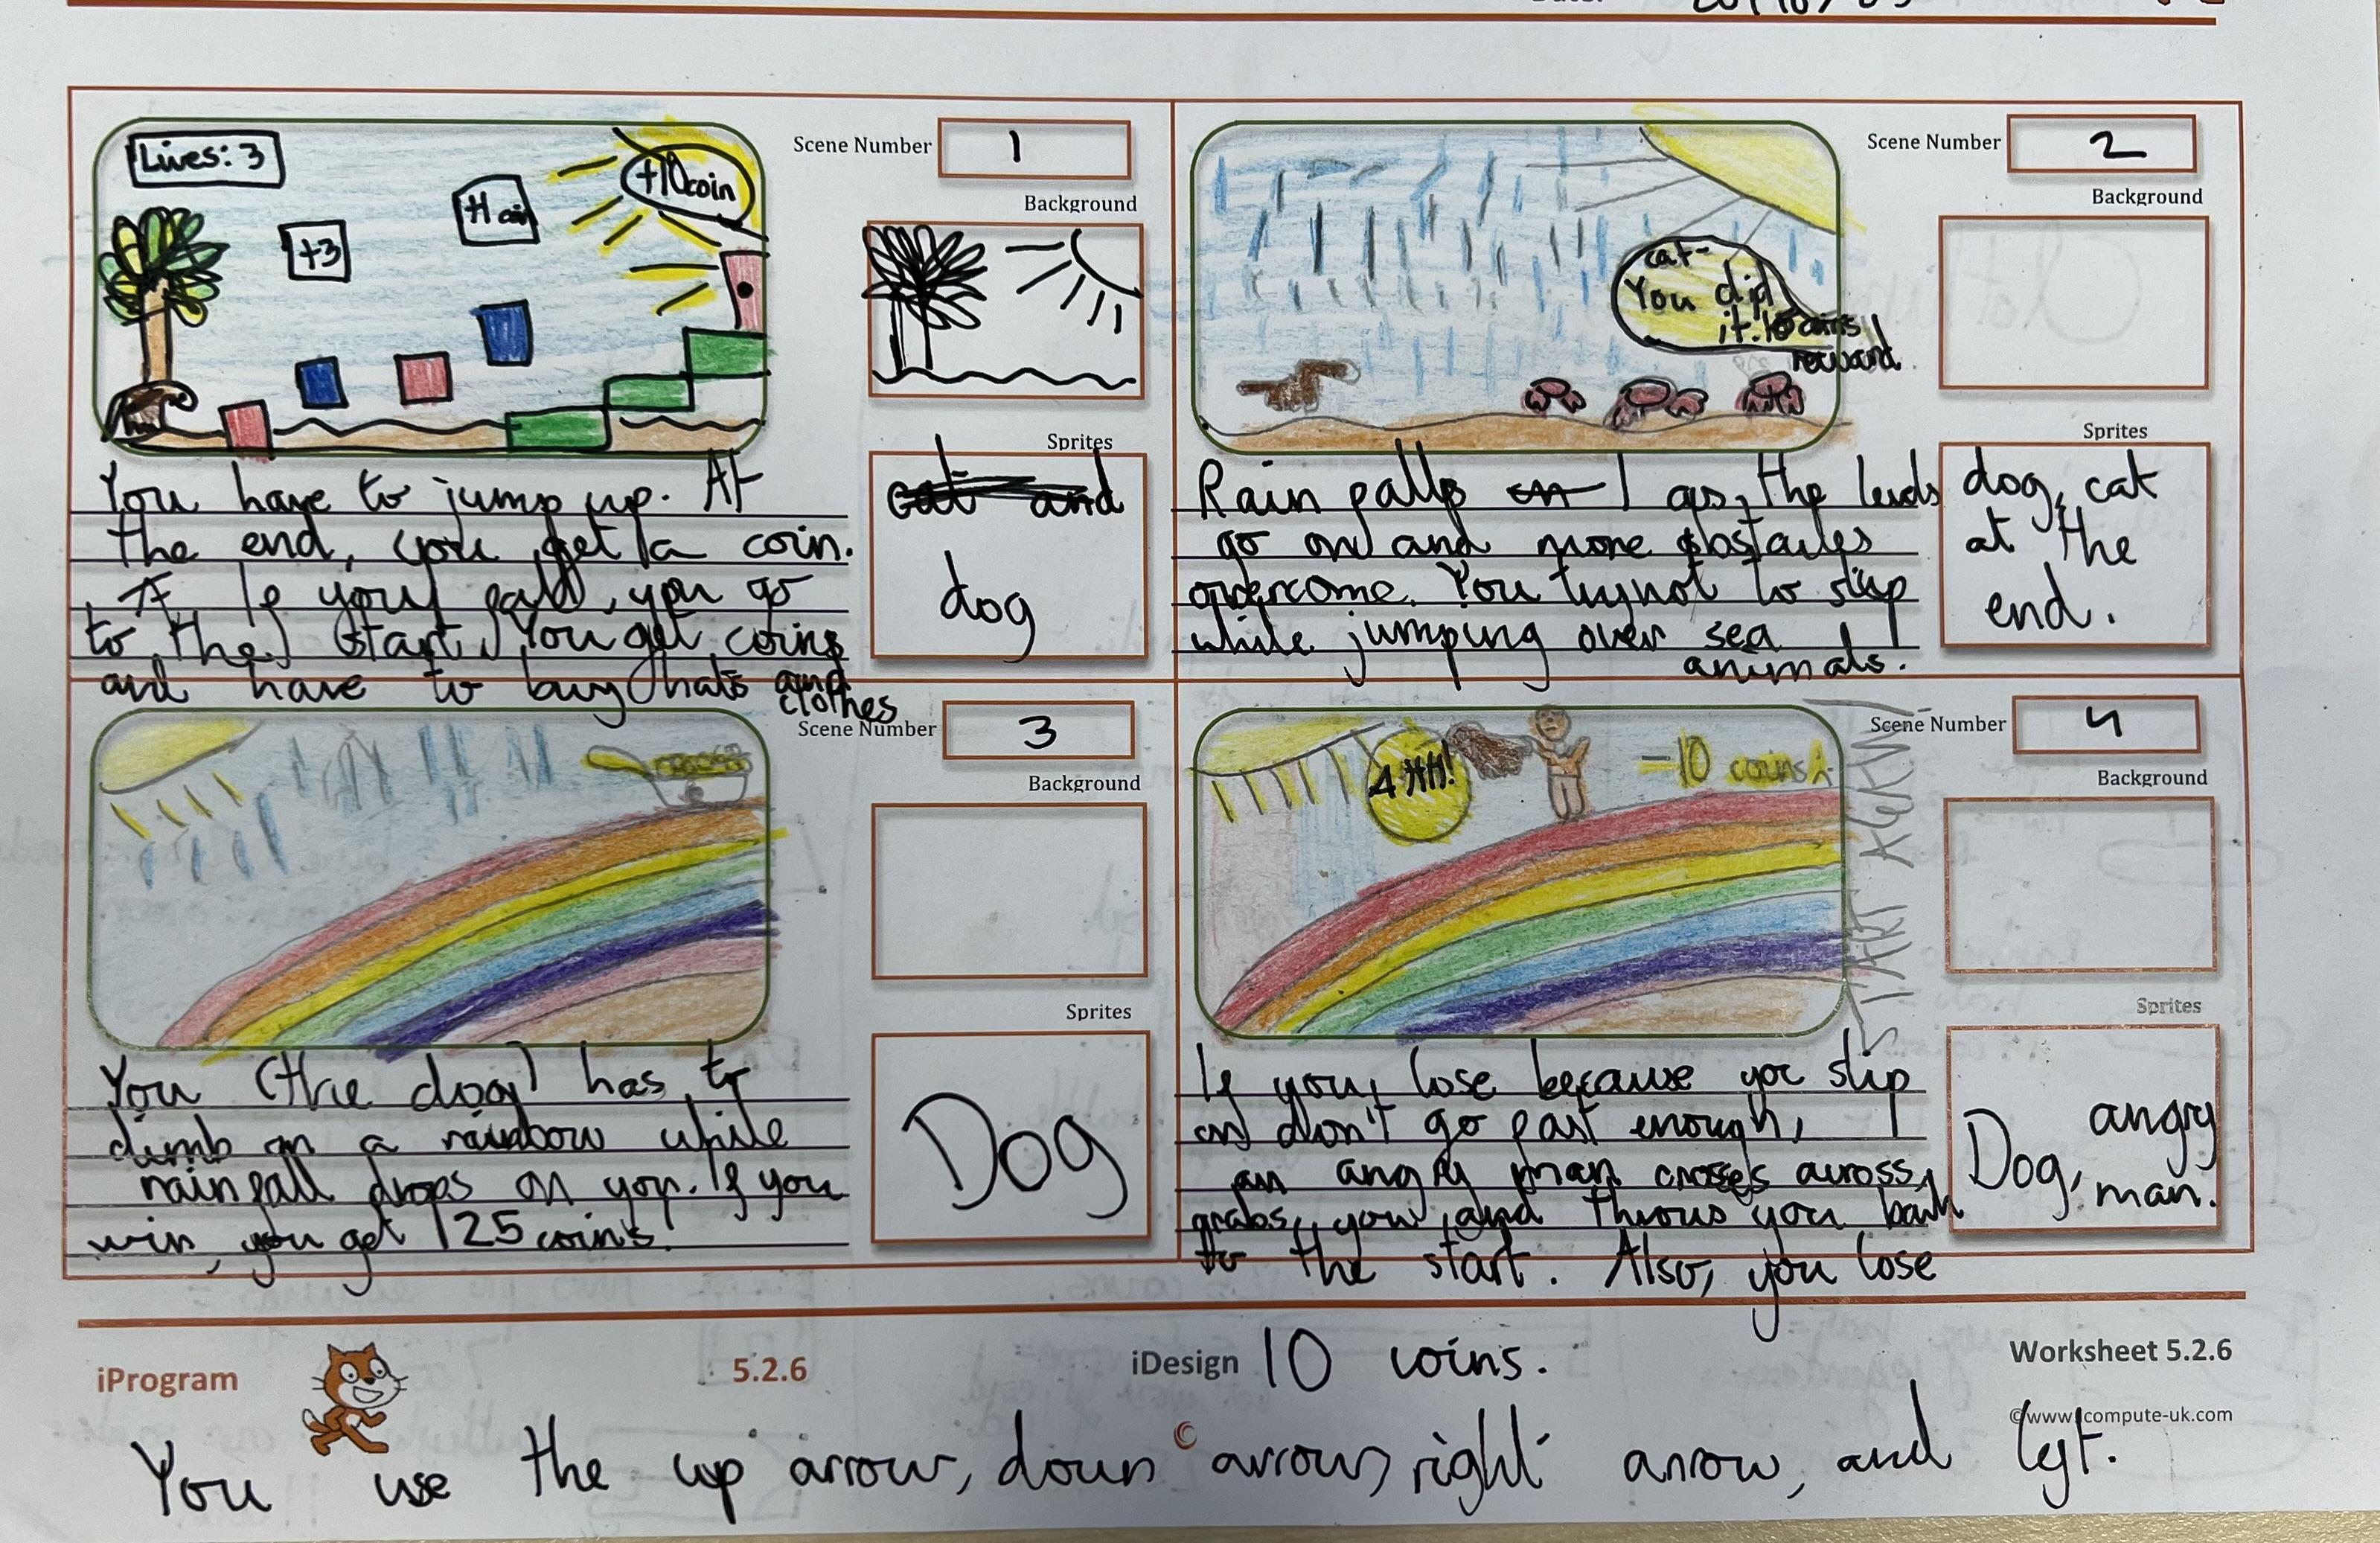 Scene Number 1
Lives: 3
+3
+10 coin
Background
Sprites
cat and
dog
You have to jump up. At
the end, you get a coin.
If you fall, you go
to the start. You get coins
and have to buy hats and
clothes
Scene Number 2
Background
cat-
You did
it. 10 coins
reward
Sprites
dog, cat
at the
end.
Rain falls as the levels
go on and more obstacles
overcome. You try not to slip
while jumping over sea
animals.
Scene Number 3
Background
Sprites
Dog
You (the dog) has to
climb on a rainbow while
rainfall drops on you. If you
win, you get 125 coins.
Scene Number 4
AHH!
-10 coins
Background
Sprites
Dog, angry
man.
If you lose because you slip
or don't go fast enough,
an angry man crosses across,
grabs you and throws you back
to the start. Also, you lose
10 coins.
iProgram
5.2.6
iDesign
Worksheet 5.2.6
©www.icompute-uk.com
You use the up arrow, down arrow, right arrow, and left.